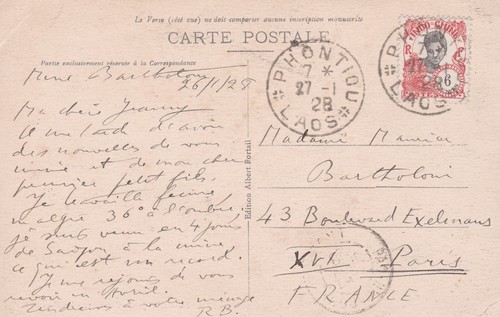 Le Verso (côté vue) ne doit comporter aucune inscription manuscrite
CARTE POSTALE
Partie exclusivement réservée à la Correspondance
26/1/28
Ma chère Jeanny
il me tarde d'avoir
des nouvelles de vous
et de mon cher
premier petit fils.
Je travaille ferme
malgré 36° à l'ombre,
je suis venu en 4 jours
de Saigon à la mine,
ce qui est un record.
Je me réjouis de vous
revoir en Avril.
Tendresses à votre ménage
R.B.
Edition Albert Portail
PHONTIOU
7 *
27-1
28
LAOS
INDO-CHINE
R F
6
PHONTIOU
27-1
28
LAOS
Madame Maurice
Bartholoni
43 Boulevard Exelmans
XVI Paris
FRANCE